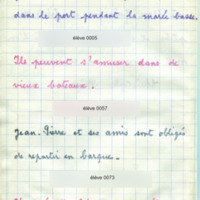 dans le port pendant la marée basse.
élève 0005
Ils peuvent s'amuser dans de
vieux bateaux.
élève 0057
Jean-Pierre et ses amis sont obligés
de repartir en barque.
élève 0073